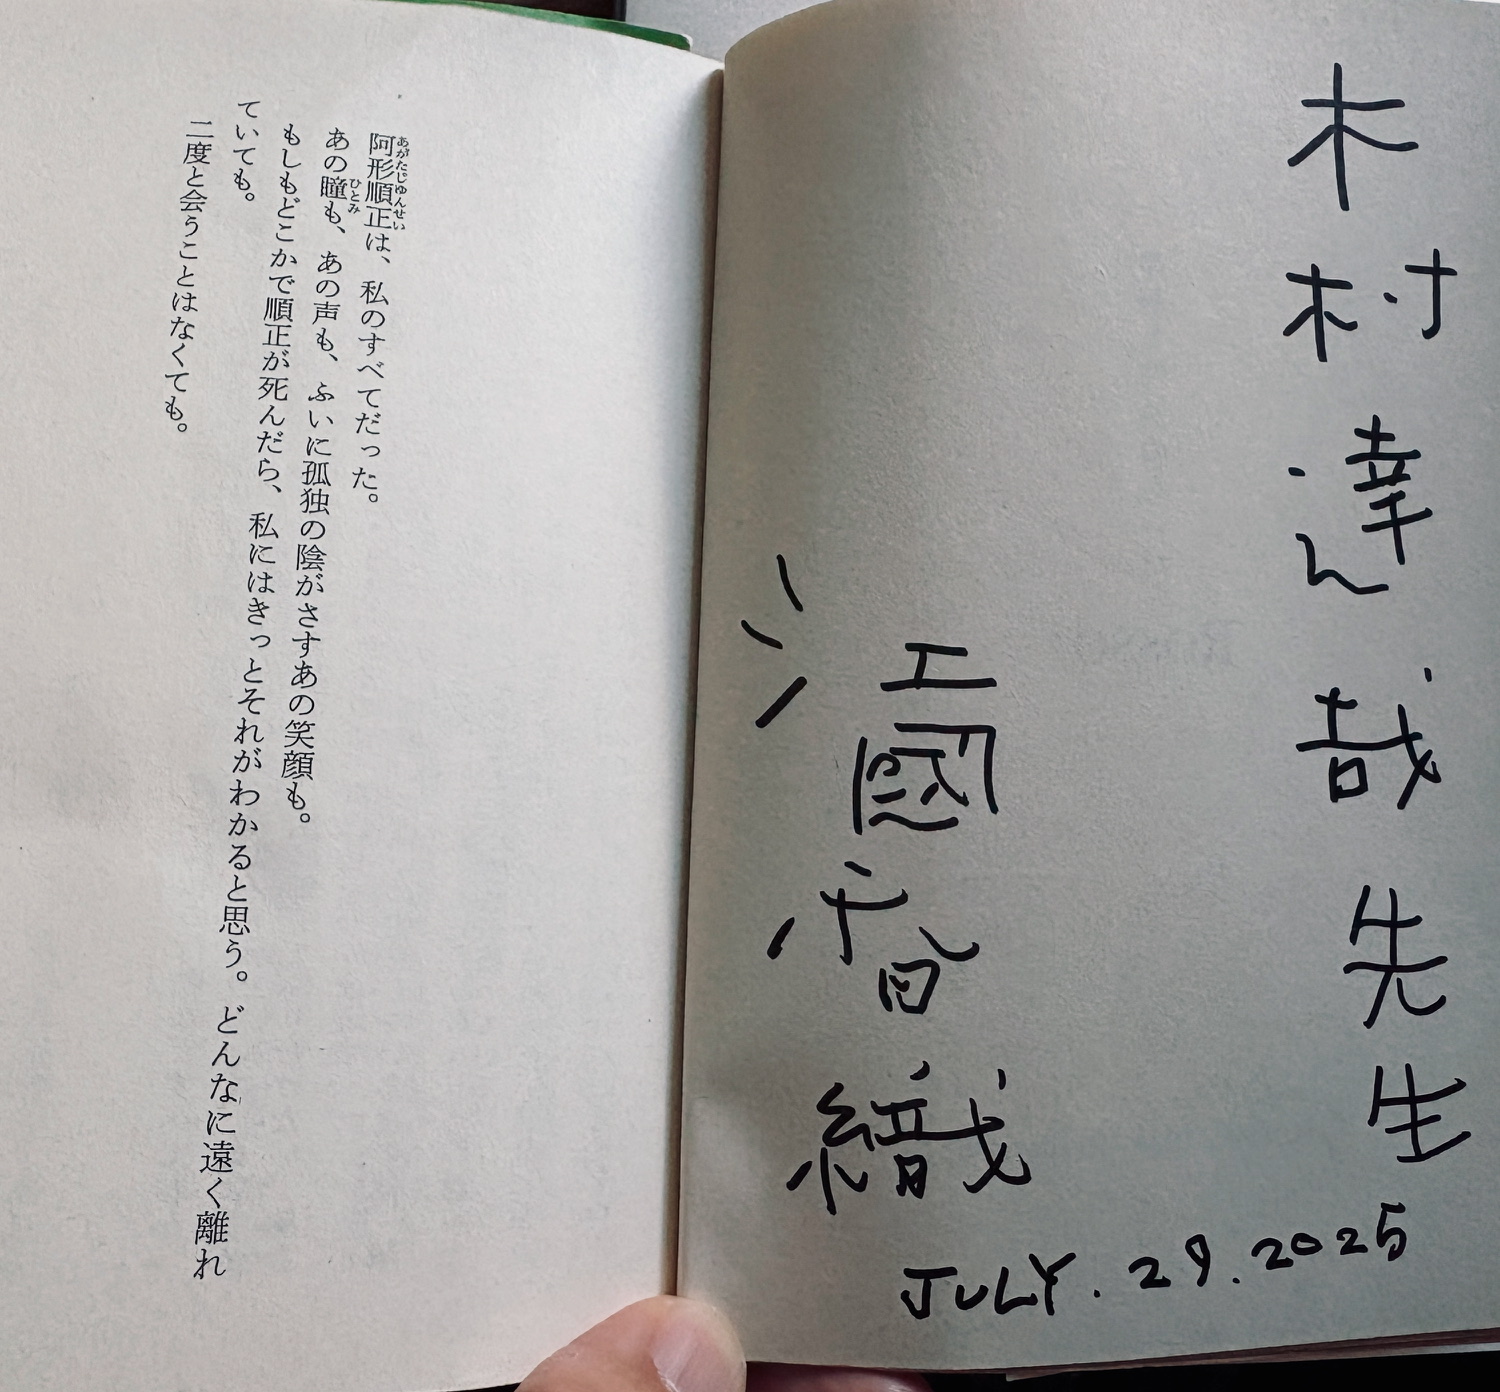 木村達哉先生
江國香織
JULY.29.2025
阿形順正は、私のすべてだった。
あがたじゅんせい
あの瞳も、あの声も、ふいに孤独の陰がさすあの笑顔も。
ひとみ
もしもどこかで順正が死んだら、私にはきっとそれがわかると思う。どんなに遠く離れ
ていても。
二度と会うことはなくても。